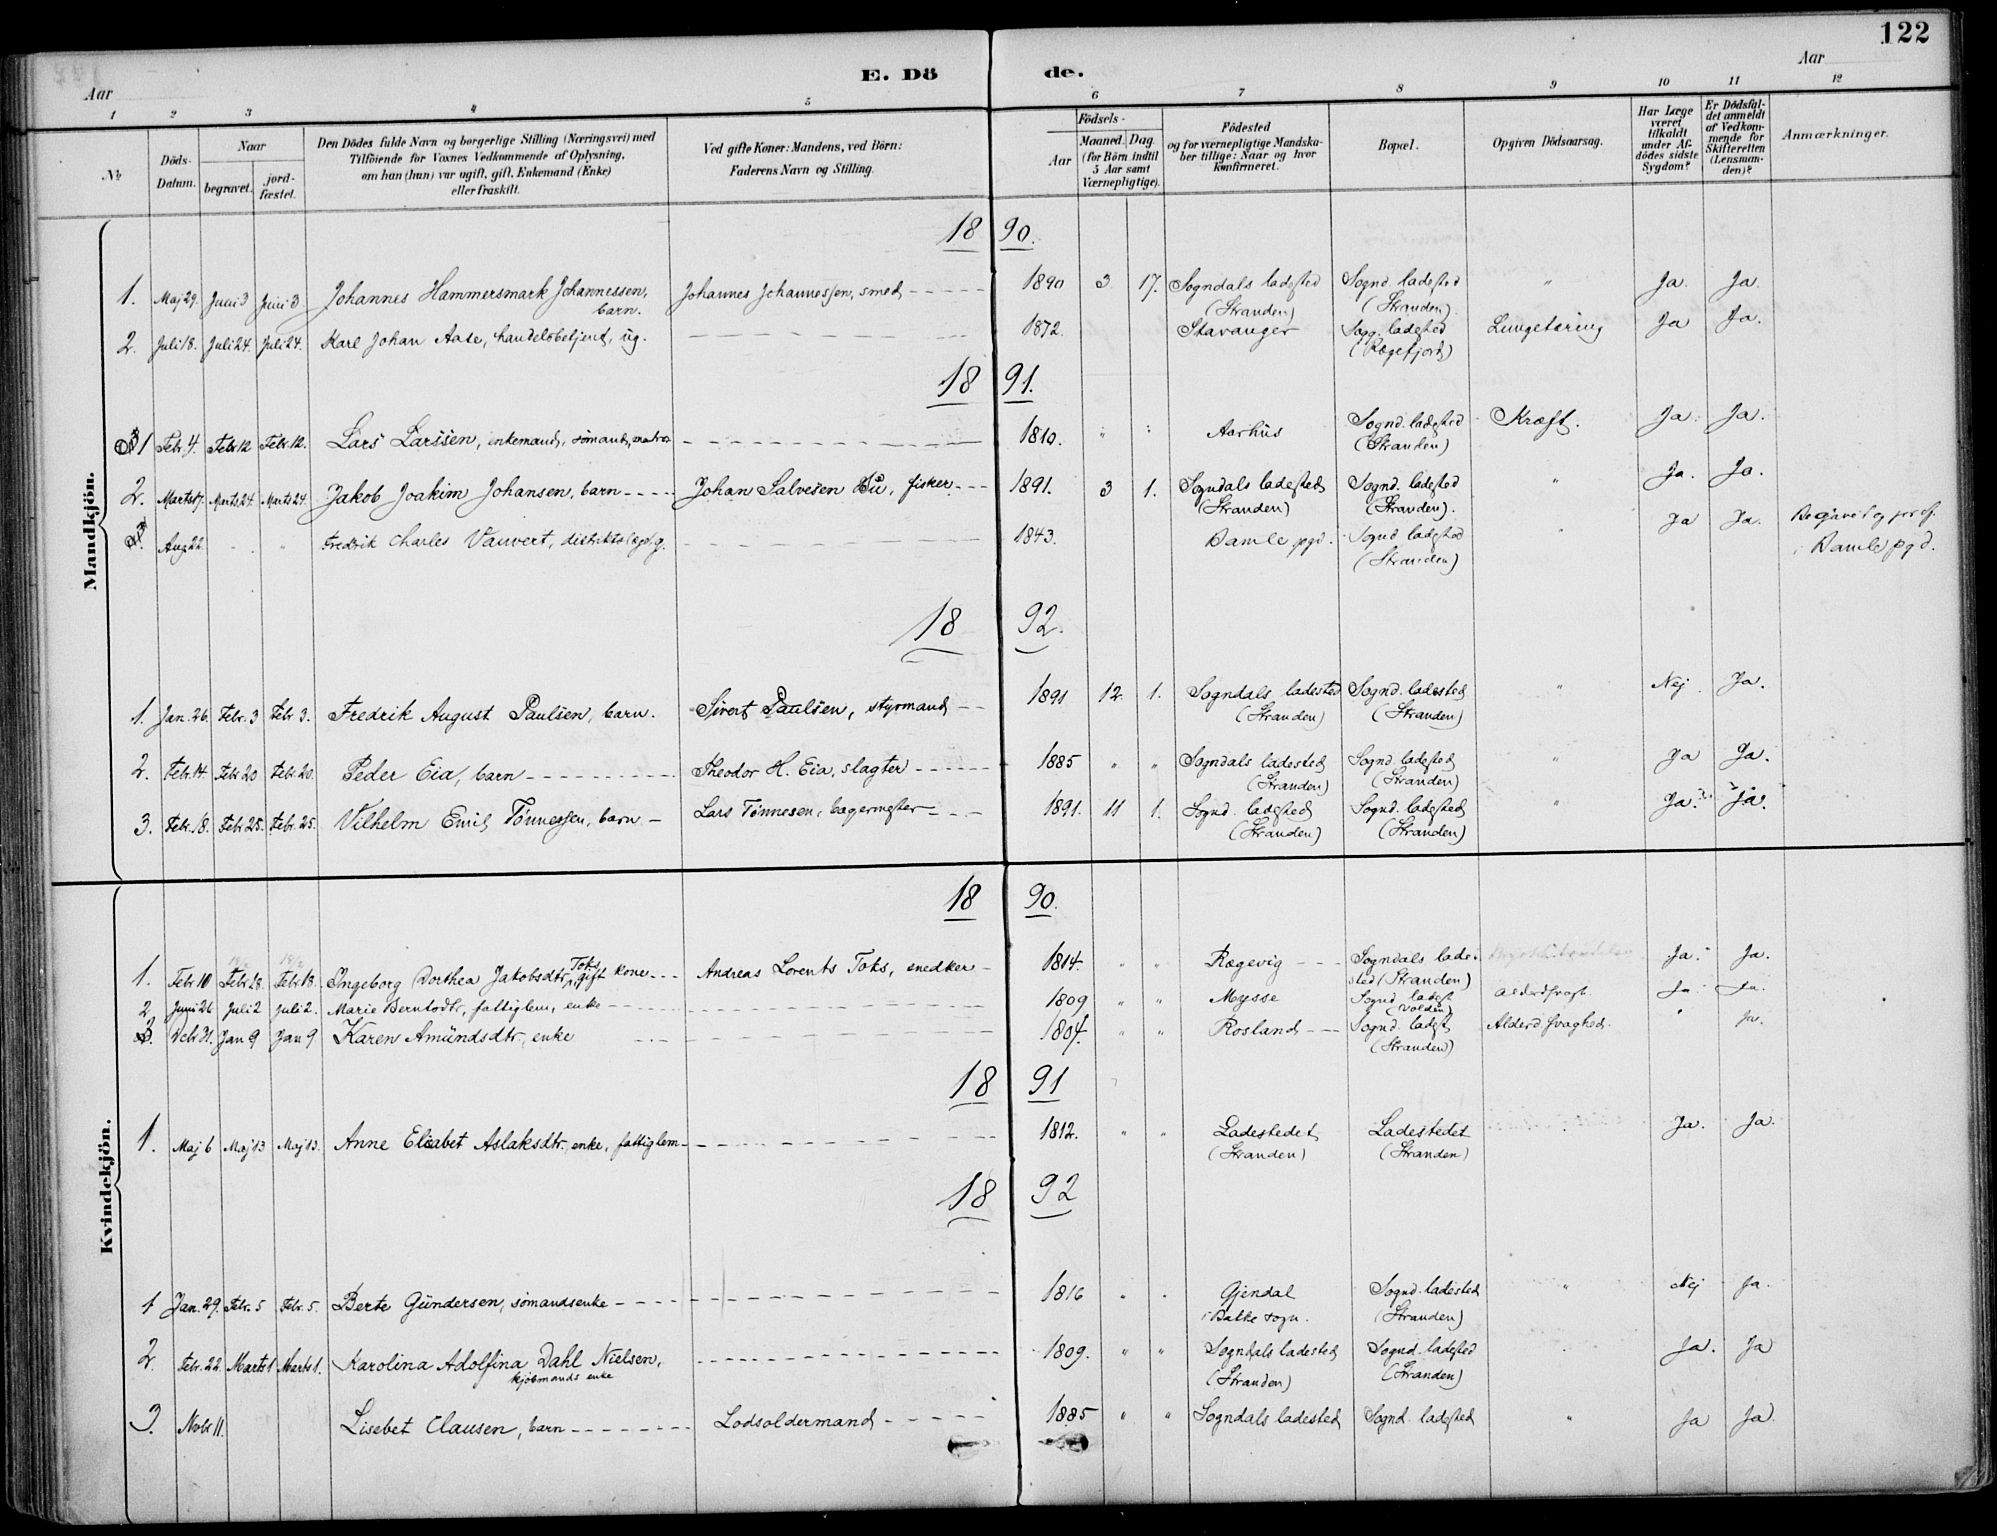 122
E. Dö de.
Aar Aar
1 2 3 4 5 6 7 8 9 10 11 12
No.
Döds-Datum.
Naar
begravet.
jord-fæstet.
Den Dödes fulde Navn og borgerlige Stilling (Næringsvei) med
Tilföiende for Voxnes Vedkommende af Oplysning,
om han (hun) var ugift, gift, Enkemand (Enke)
eller fraskilt.
Ved gifte Koner: Mandens, ved Börn:
Faderens Navn og Stilling.
Födsels-
Aar
Maaned. Dag.
(for Börn indtil
5 Aar samt
Værnepligtige).
Födested
og for værnepligtige Mandska-
ber tillige: Naar og hvor
Konfirmeret.
Bopæl.
Opgiven Dödsaarsag.
Har Læge
været
tilkaldt
under Af-
dödes sidste
Sygdom?
Er Dödsfal-
det anmeldt
af Vedkom-
mende for
Skifteretten
(Lensman-
den)?
Anmærkninger.
Mandkjön.
18 90.
1. Maj 29. Juni 3 Juni 3 Johannes Hammersmark Johannessen, barn. Johannes Johannessen, smed 1890 3 17. Sogndals ladested (Stranden) Sognd. ladested (Stranden). " Ja. Ja.
2. Juli 18. Juli 24. Juli 24. Karl Johan Aase, handelsbetjent, ug. 1872. Stavanger Sogn. ladested (Rægefjord) Lungetæring Ja Ja.
18 91.
1 Febr. 4. Febr. 12 Febr. 12. Lars Larssen, enkemand, sømand, 1810. " " Aarhus Sognd. ladested (Stranden) Kræft. Ja. Ja.
2. Marts 17. Marts 24. Marts 24. Jakob Joakim Johansen, barn Johan Salvesen Bu, fisker 1891. 3 1. Sogndals ladested (Stranden) Sognd. ladested (Stranden). " Ja. Ja.
Aug 22. " Fredrik Charles Vauvert, distriktslæge, g. 1843. Bamle pgd. Sognd ladested (Stranden) " Ja Ja. Begravet og jordf.
i Bamle pgd.
18 92.
1. Jan. 26. Febr. 3 Febr. 3. Fredrik August Paulsen, barn. Sivert Paulsen, styrmand 1891 12. 1. Sogndals ladested (Stranden) Sognd. ladested (Stranden) " Nej. Ja.
2. Febr. 14. Febr. 20 Febr. 20. Peder Eia, barn Theodor H. Eia, slagter 1885 " " Sogndals ladested (Stranden) Sognd. ladested (Stranden) " Ja Ja.
3. Febr. 18. Febr. 25. Febr. 25. Vilhelm Emil Tønnessen, barn Lars Tønnesen, bagermester 1891. 11 1. Sognd. ladested (Stranden) Sognd. ladested (Stranden) " Ja. Ja.
Kvindekjön.
18 90.
1. Febr 10 Febr. 18. Febr. 18. Ingeborg Dorthea Jakobsdtr. Toks, gift kone Andreas Lorents Toks, snedker 1814. " " Rægevig Sogndals lade-sted (Stranden) Ja. Ja.
2 Juni 26 Juli 2 Juli 2. Marie Berntsdtr., fattiglem, enke 1809 " " Mysse Sognd ladest (Volden) Alderdsvagh. Ja. Ja.
3. Debr. 31. Jan 9 Jan 9 Karen Amundsdtr., enke 1804. " " Rosland Sognd. ladest. (Stranden) Alderd svaghed. " Ja.
18 91
1. Maj 6 Maj 13 Maj 13. Anne Elisabet Aslaksdtr. enke, fattiglem 1812. " " Ladestedet (Stranden) Ladestedet (Stranden) Ja. Ja.
18 92
1 Jan. 29. Febr. 5 Febr. 5. Berte Gundersen, sømandsenke 1816 " " Gjendal i Bakke sogn. Sognd. ladested (Stranden) " Nej Ja.
2. Febr. 22. Marts 1 Marts 1. Karolina Adolfina Dahl Nielsen, kjøbmands enke 1809. " " Sogndals ladested (Stranden) Sognd. ladested (Stranden) Ja. Ja
3. Novbr 11. Lisebet Clausen, barn Lodsoldermand 1885 " " Sogndals ladested Sognd. ladested " Ja Ja.